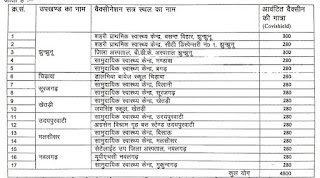 क्र.सं. उपखण्ड का नाम वैक्सीनेशन सत्र स्थल का नाम आवंटित वैक्सीन की मात्रा (Covishield)
1 शहरी प्राथमिक स्वास्थ्य केन्द्र, बसन्त विहार, झुन्झुनू 300
2 शहरी प्राथमिक स्वास्थ्य केन्द्र, सीटी डिस्पेन्सरी नं0 1, झुन्झुनू 280
3 झुन्झुनू जिला अस्पताल, बी.डी.के. अस्पताल झुन्झुनू 300
4 सामुदायिक स्वास्थ्य केन्द्र, मण्डावा 280
5 सामुदायिक स्वास्थ्य केन्द्र, बगड़ 280
6 चिड़ावा डालमिया स्कूल चिड़ावा 280
7 सूरजगढ़ सामुदायिक स्वास्थ्य केन्द्र, पिलानी 280
8 सामुदायिक स्वास्थ्य केन्द्र, सूरजगढ़ 280
9 खेतड़ी सामुदायिक स्वास्थ्य केन्द्र, खेतड़ी 280
10 स्कूल, खेतड़ी 280
11 उदयपुरवाटी सामुदायिक स्वास्थ्य केन्द्र, उदयपुरवाटी 280
12 उदयपुरवाटी 280
13 मलसीसर सामुदायिक स्वास्थ्य केन्द्र, बिसाऊ 280
14 सामुदायिक स्वास्थ्य केन्द्र, मलसीसर 280
15 नवलगढ़ जिला अस्पताल, नवलगढ़ 280
16 यूपीएचसी नवलगढ़ 280
17 सामुदायिक स्वास्थ्य केन्द्र, मुकुन्दगढ़ 280
कुल योग 4800